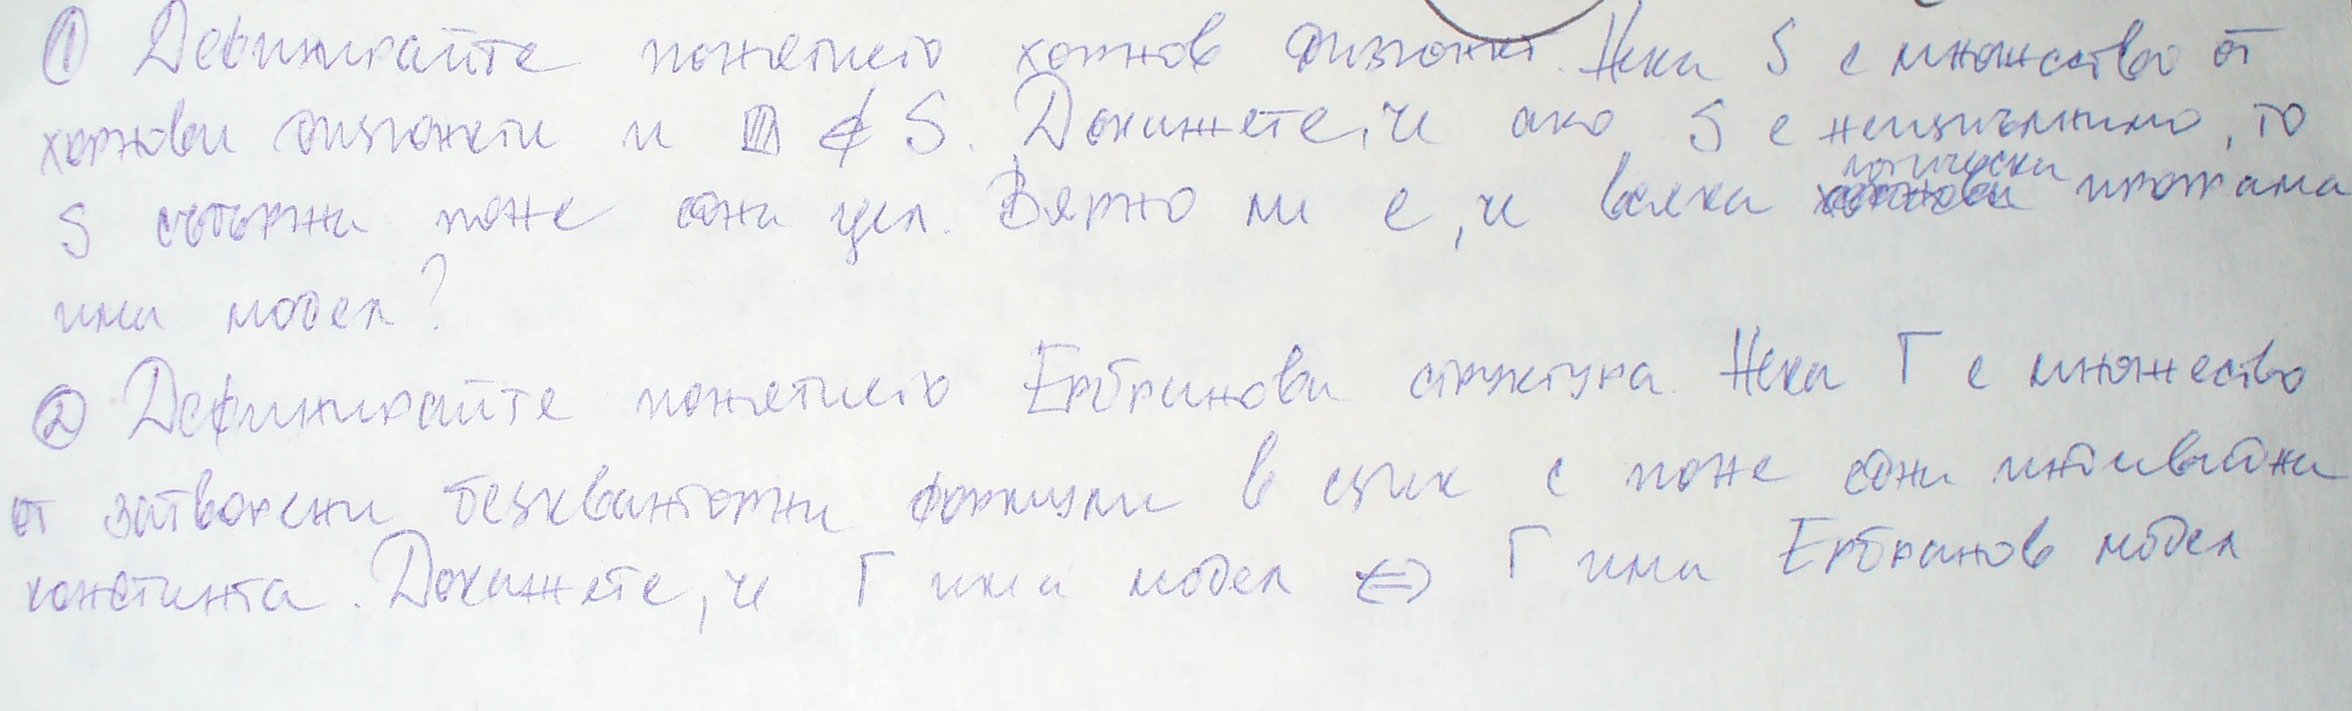 ① Дефинирайте понятието хорнов дизюнкт. Нека S е множество от
хорнови дизюнкти и ∉ S. Докажете, че ако S е неизпълнимо, то
S съдържа поне една цел. Вярно ли е, че всяка логическа програма
има модел?
② Дефинирайте понятието Ербранова структура. Нека Г е множество
от затворени безкванторни формули в език с поне една индивидна
константа. Докажете, че Г има модел ⇔ Г има Ербранов модел